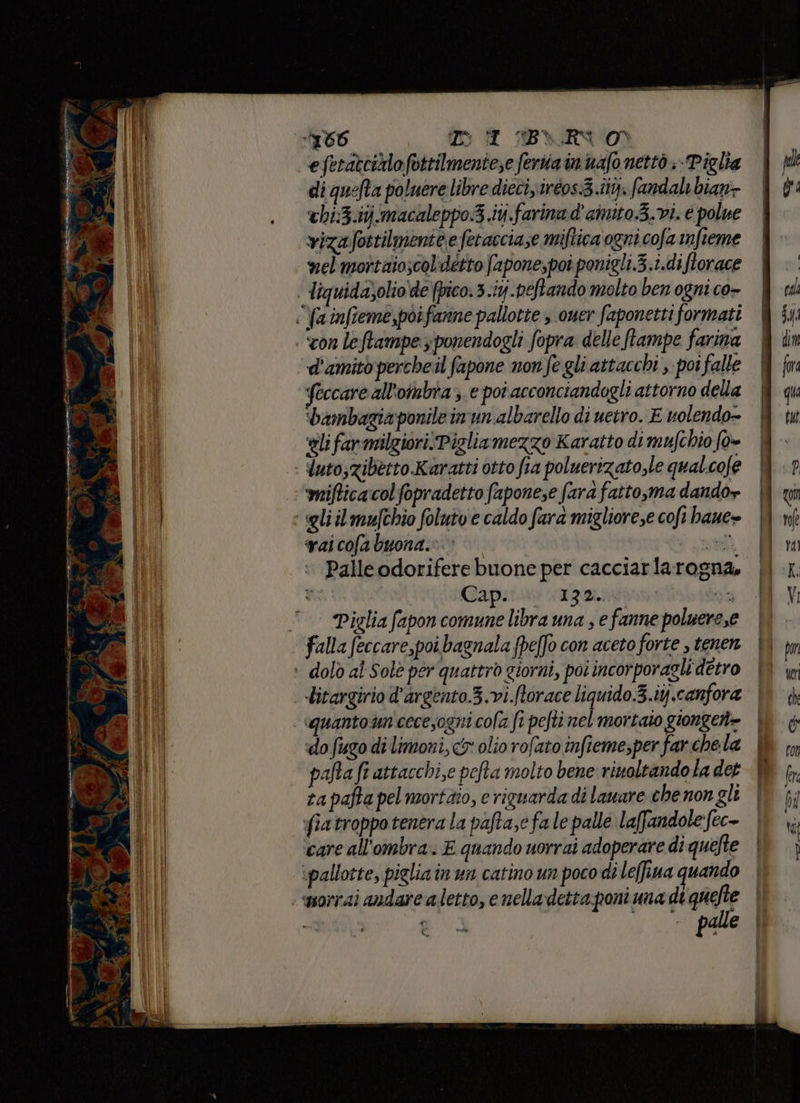 166 D I B A R O
e ſetaccialo ſottilmente, e ſerua in uaſo netto. Piglia
di queſta poluere libre dieci, ireos.℥.iiij. ſandali bian-
chi.℥.iij.macaleppo.℥.iij.farina d'amito.℥.vi. e polue
riza ſottilmente e ſetaccia, e miſtica ogni coſa inſieme
nel mortaio; col detto ſapone, poi ponigli.℥.i.di ſtorace
liquida, olio de ſpico.℥.iij.peſtando molto ben ogni co-
ſa inſieme, poi fanne pallotte, ouer ſaponetti formati
con le ſtampe, ponendogli ſopra delle ſtampe farina
d'amito perche il ſapone non ſe gli attacchi, poi falle
ſeccare all'ombra, e poi acconciandogli attorno della
bambagia ponile in un albarello di uetro. E uolendo-
gli far milgiori. Piglia mezzo Karatto di muſchio ſo-
luto, zibetto.Karatti otto ſia poluerizato, le qual coſe
miſtica col ſopradetto ſapone, e ſarà fatto, ma dando-
gli il muſchio ſoluto e caldo ſarà migliore, e coſi haue-
rai coſa buona.
Palle odorifere buone per cacciar la rogna,
Cap. 132.
Piglia ſapon comune libra una, e fanne poluere, e
falla ſeccare, poi bagnala ſpeſſo con aceto forte, tenen
dolo al Sole per quattro giorni, poi incorporagli detro
litargirio d'argento.℥.vi.ſtorace liquido.℥.iij.canfora
quanto un cece, ogni coſa ſi peſti nel mortaio giongen-
do ſugo di limoni, & olio roſato inſieme, per far che la
paſta ſi attacchi, e peſta molto bene riuoltando la det
ta paſta pel mortaio, e riguarda di lauare che non gli
ſia troppo tenera la paſta, e fa le palle laſſandole ſec-
care all'ombra. E quando uorrai adoperare di queſte
pallotte, piglia in un catino un poco di leſſiua quando
uorrai andare a letto, e nella detta poni una di queſte
palle